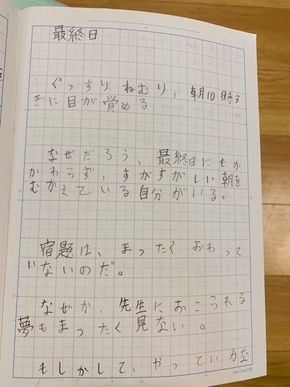 最終日
ぐっすりねむり、朝10時す
ぎに目が覚める
なぜだろう、最終日にもか
かわらず、すがすがしい朝を
むかえている自分がいる。
宿題は、まったくおわって
いないのだ。
なぜか、先生におこられる
夢もまったく見ない。
もしかして、やっている方な